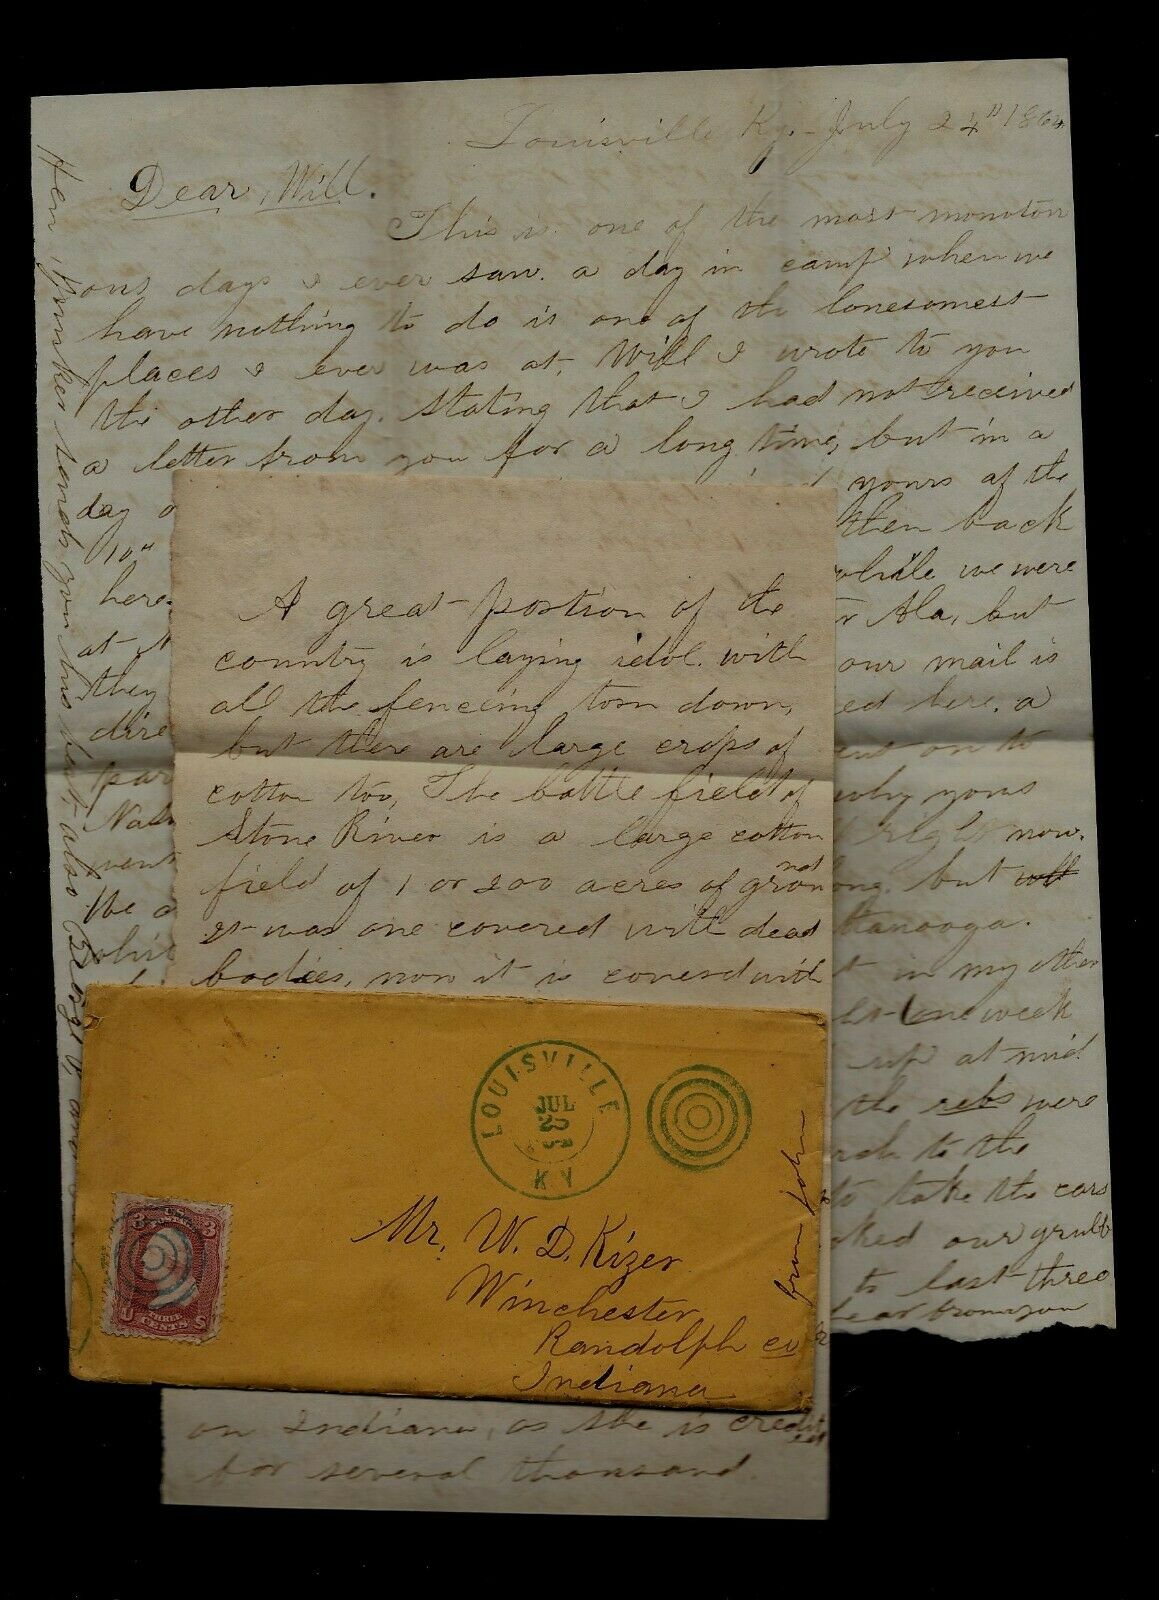 Louisville Ky. July 24th 1864
Dear Will.
This is one of the most monoton
ous days I ever saw. a day in camp when we
have nothing to do is one of the lonesomest
places I ever was at, Will I wrote to you
the other day. stating that I had not received
a letter from you for a long time, but in a
day o
yours of the
10th
then back
here
while we were
at N
r Ala, but
they
our mail is
dire
ed here. a
par
ent on to
Nas
why yours
went
right now.
ong. but
the
ttanooga.
whi
t in my other
one week
up at mid
the rebs were
rch to the
to take the cars
oked our grub
to last three
hear from you
Hen, Yunker sends you his best, also George V, and
A great portion of the
country is laying idol. with
all the fencing torn down,
but there are large crops of
cotton too, The battle field of
Stone River is a large cotton
field of 1 or 200 acres of groun
not
It was one covered with dead
bodies, now it is coverd with
on Indiana, as she is credit
ed
for several thousand.
LOUISVILLE
JUL
25
KY
Mr. W. D. Kizer
Winchester
Randolph co
Indiana
from John
3 3
THREE
CENTS
U S